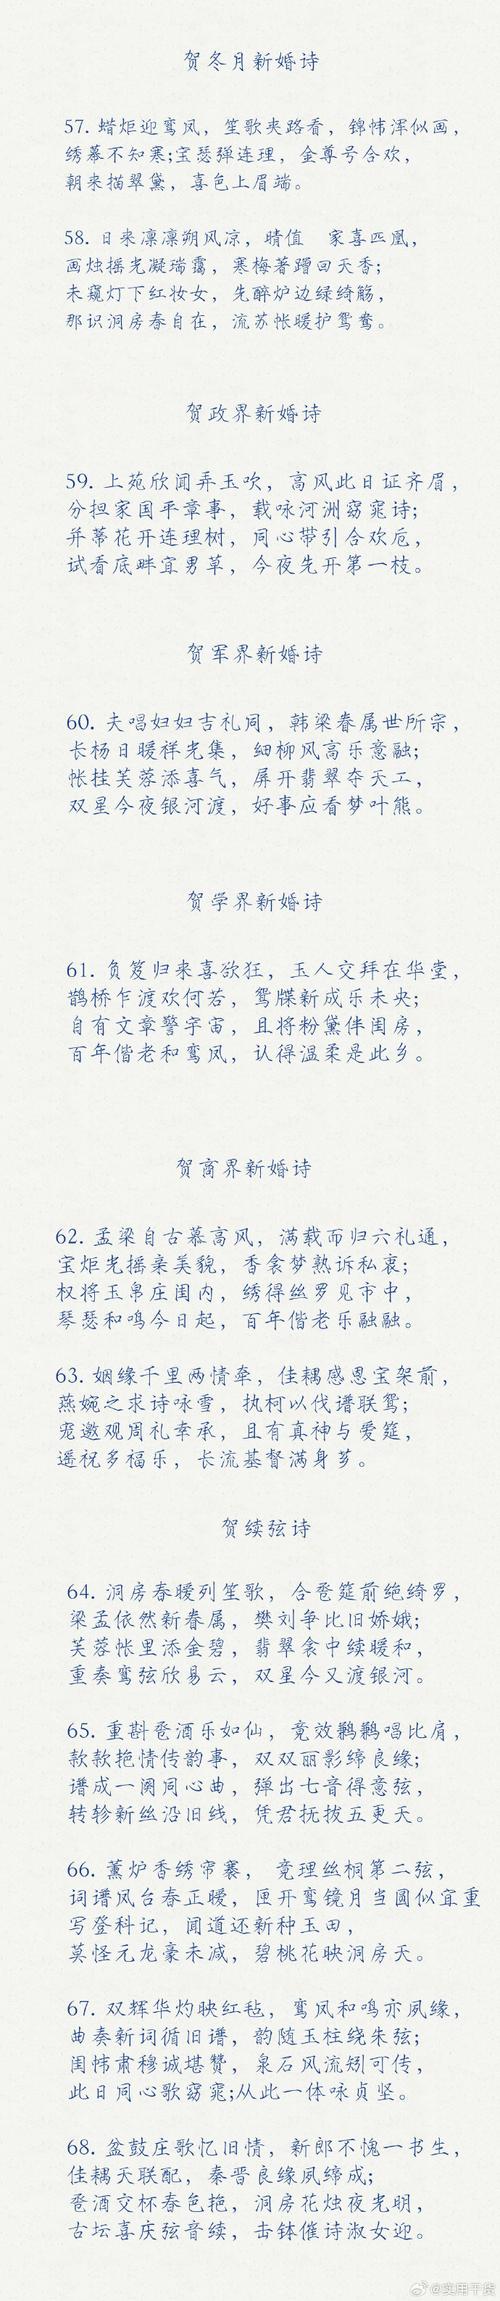 贺冬月新婚诗
57. 蜡炬迎鸾凤，笙歌夹路看，锦帏浑似画，
绣幕不知寒;宝瑟弹连理，金尊号合欢，
朝来描翠黛，喜色上眉端。
58. 日来凛凛朔风凉，晴值 家喜匹凰，
画烛摇光凝瑞霭，寒梅著蹭回天香；
未窥灯下红妆女，先醉炉边绿绮觞，
那识洞房春自在，流苏帐暖护鸳鸯。
贺政界新婚诗
59. 上苑欣闻弄玉吹，高风此日证齐眉，
分担家国平章事，载咏河洲窈窕诗；
并蒂花开连理树，同心带引合欢卮，
试看底畔宜男草，今夜先开第一枝。
贺军界新婚诗
60. 夫唱妇妇吉礼同，韩梁眷属世所宗，
长杨日暖祥光集，细柳风高乐意融；
帐挂芙蓉添喜气，屏开翡翠夺天工，
双星今夜银河渡，好事应看梦叶熊。
贺学界新婚诗
61. 负笈归来喜欲狂，玉人交拜在华堂，
鹊桥乍渡欢何若，鸳牒新成乐未央；
自有文章警宇宙，且将粉黛伴闺房，
百年偕老和鸾凤，认得温柔是此乡。
贺商界新婚诗
62. 孟梁自古慕高风，满载而归六礼通，
宝炬光摇亲美貌，香衾梦熟诉私衷；
权将玉帛庄闺内，绣得丝罗见市中，
琴瑟和鸣今日起，百年偕老乐融融。
63. 姻缘千里两情牵，佳耦感恩宝架前，
燕婉之求诗咏雪，执柯以伐谱联鸳；
宠邀观周礼幸承，且有真神与爱筵，
遥祝多福乐，长流基督满身芗。
贺续弦诗
64. 洞房春暧列笙歌，合卺筵前绝绮罗，
梁孟依然新眷属，樊刘争比旧娇娥；
芙蓉帐里添金碧，翡翠衾中续暖和，
重奏鸾弦欣易云，双星今又渡银河。
65. 重斟卺酒乐如仙，竟效鹣鹣唱比肩，
款款艳情传韵事，双双丽影缔良缘；
谱成一阕同心曲，弹出七音得意弦，
转轸新丝沿旧线，凭君抚拔五更天。
66. 薰炉香绣帘褰， 竞理丝桐第二弦，
词谱凤台春正暧，匣开鸾镜月当圆似宜重
写登科记，闻道还新种玉田，
莫怪元龙豪未减，碧桃花映洞房天。
67. 双辉华灼映红毡，鸾凤和鸣亦夙缘，
曲奏新词循旧谱，韵随玉柱绕朱弦；
闺帏肃穆诚堪赞，泉石风流矧可传，
此日同心歌窈窕;从此一体咏贞坚。
68. 盆鼓庄歌忆旧情，新郎不愧一书生，
佳耦天联配，秦晋良缘夙缔成；
卺酒交杯春色艳，洞房花烛夜光明，
古坛喜庆弦音续，击钵催诗淑女迎。
@实用干货